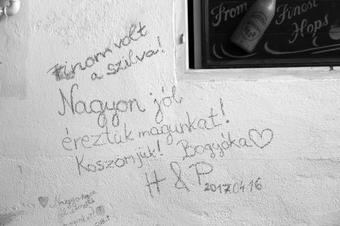 From Finest
Hops
Finom volt
a szilva!
Nagyon jól
éreztük magunkat!
Koszomjük! Bogyóka♡
H & P 2017.04.16